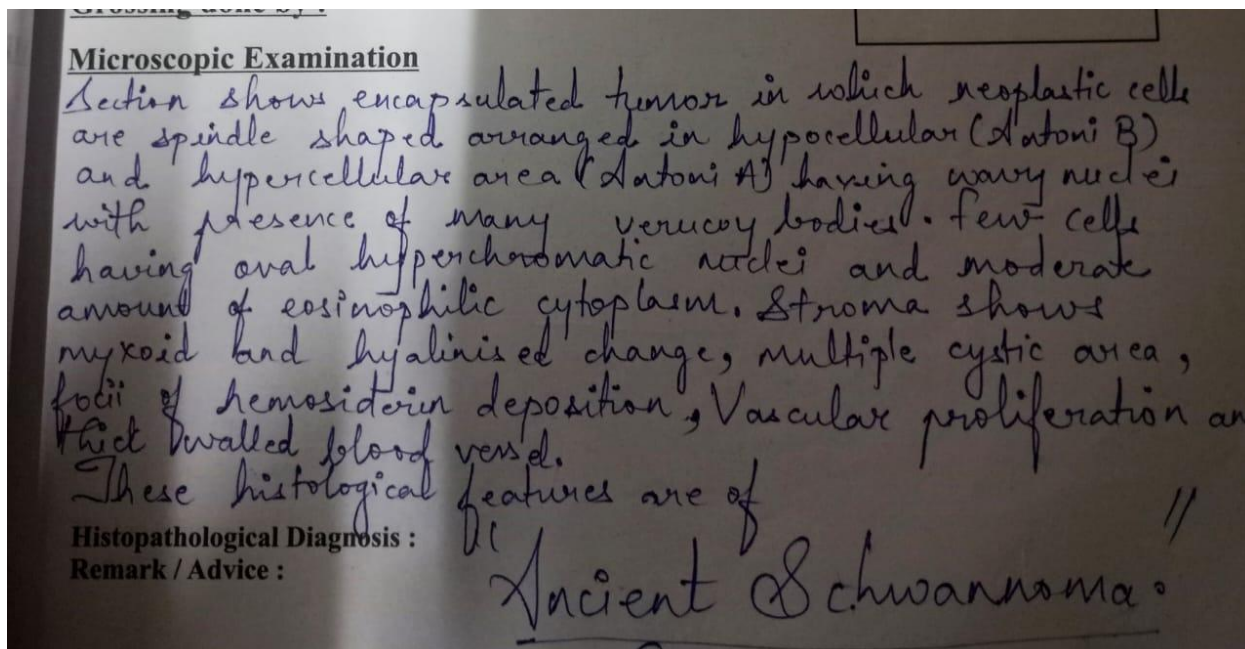 Grossing done by :
Microscopic Examination
Section shows encapsulated tumor in which neoplastic cells
are spindle shaped arranged in hypocellular (Antoni B)
and hypercellular area (Antoni A) having wavy nuclei
with presence of many verucoy bodies. few cells
having oval hyperchromatic nuclei and moderate
amount of eosinophilic cytoplasm. Stroma shows
myxoid and hyalinised change, multiple cystic area,
focii of hemosiderin deposition, Vascular proliferation an
thick walled blood vessel.
These histological features are of
Histopathological Diagnosis :
Remark / Advice :
Ancient Schwannoma.